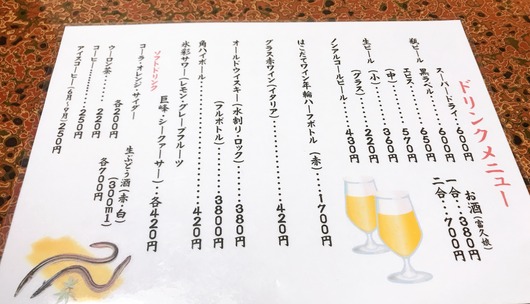 ドリンクメニュー
お酒(富久娘)
一合…380円
二合…700円
瓶ビール
スーパードライ…600円
黒ラベル……600円
ヱビス………650円
生ビール
(中)………570円
(小)………360円
(グラス)……220円
ノンアルコールビール……430円
はこだてワイン年輪ハーフボトル(赤)…1700円
グラス赤ワイン(イタリア)………420円
オールドウイスキー(水割り・ロック)…380円
(フルボトル)…3800円
角ハイボール………420円
氷彩サワー(レモン・グレープフルーツ
巨峰・シークァーサー)…各420円
生ぶどう酒(赤・白)
(300ml)
各700円
ソフトドリンク
コーラ・オレンジ・サイダー
各200円
ウーロン茶………220円
コーヒー………250円
アイスコーヒー(6月〜9月)…250円